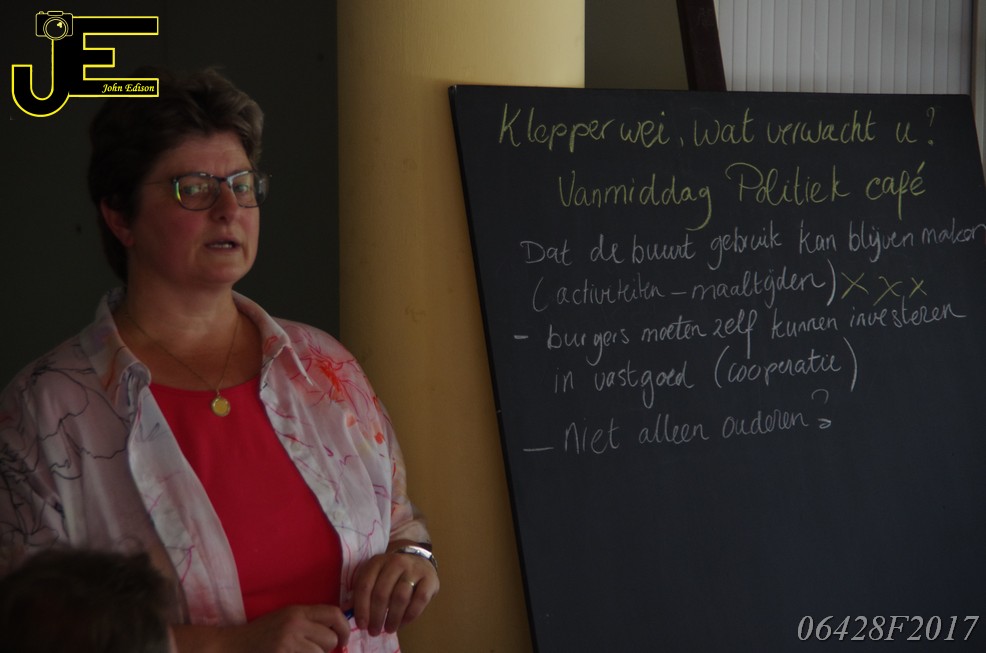 JE
John Edison
Klepperwei, wat verwacht u?
Vanmiddag Politiek café
Dat de buurt gebruik kan blijven maken
(activiteiten - maaltijden) X X X
- burgers moeten zelf kunnen investeren
in vastgoed (cooperatie)
- Niet alleen ouderen?
06428F2017